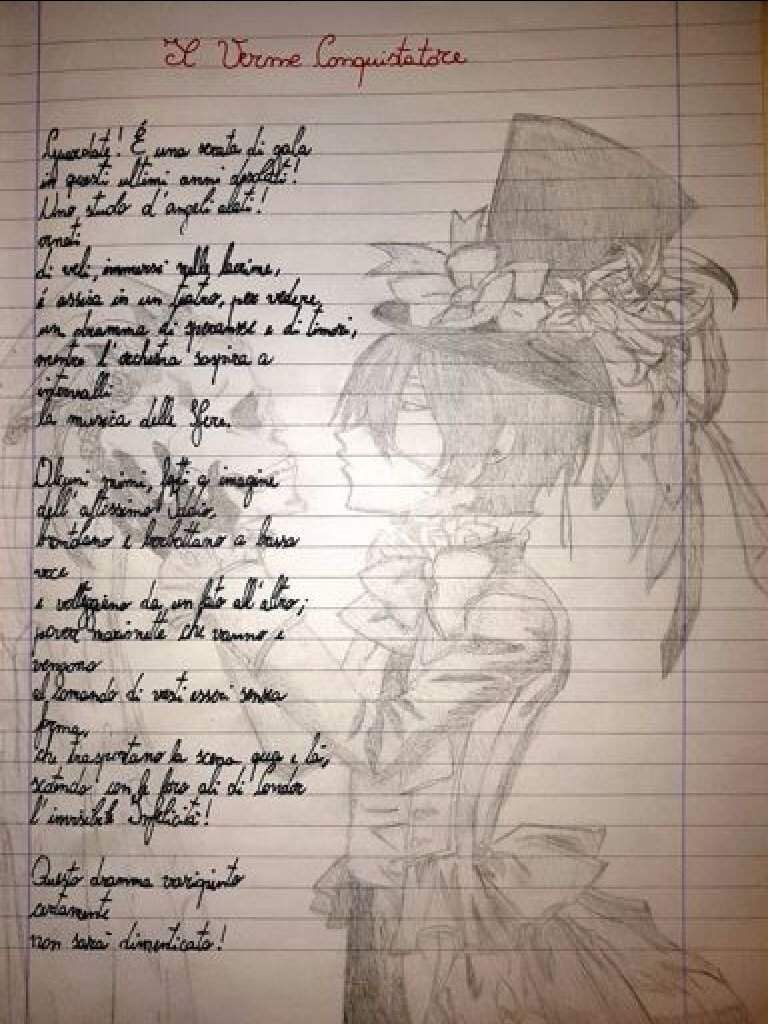 Il Verme Conquistatore
Guardate! É una serata di gala
in questi ultimi anni desolati!
Uno stuolo d'angeli alati!
ornati
di veli, immersi nelle lacrime,
é assisa in un teatro, per vedere,
un dramma di speranze e di timori,
mentre l'orchestra sospira a
intervalli
la musica delle Sfere.
Alcuni mimi, fatti a imagine
dell'altissimo Iddio,
brontolano e borbottano a bassa
voce
e volteggiano da un lato all'altro;
povere marionette che vanno e
vengono
al Comando di vasti esseri senza
forma,
che trasportano la scena qua e là,
scotendo con le loro ali di Condor
l'invisibile Infelicità!
Questo dramma variopinto
certamente
non sarà dimenticato!